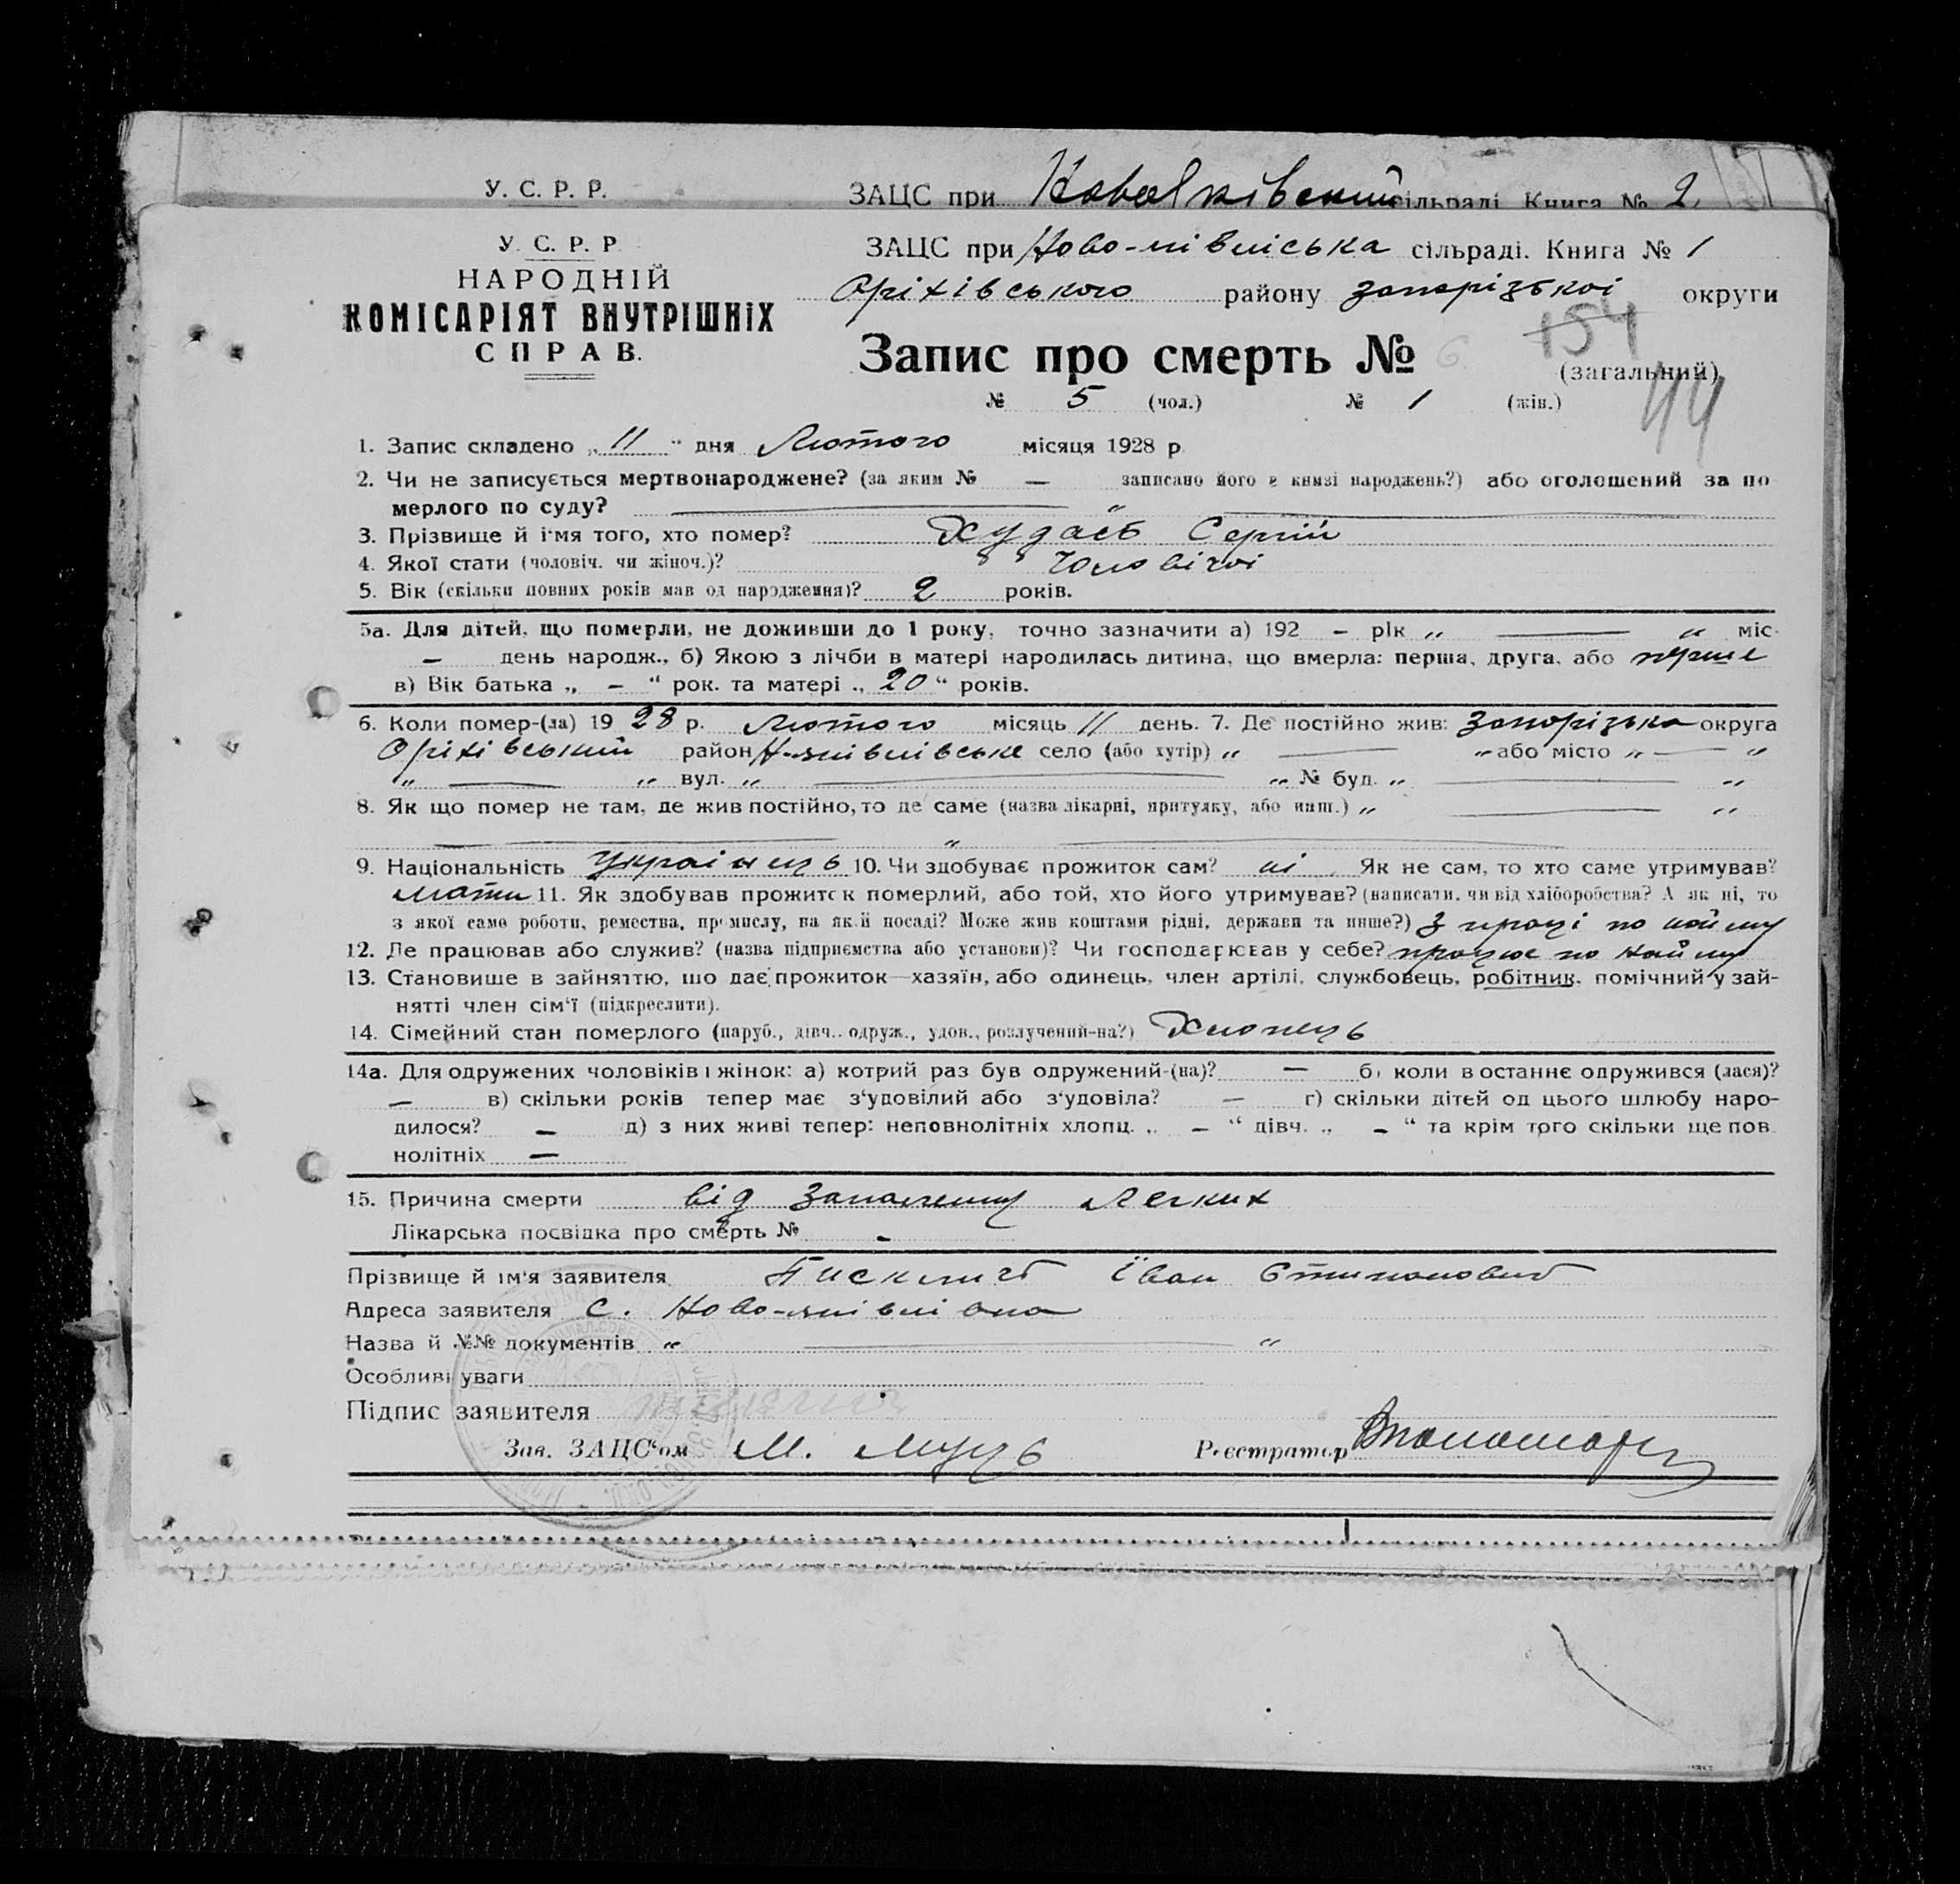 У. С. Р. Р.
ЗАЦС при сільраді. Книга № 2
У. С. Р. Р
НАРОДНІЙ
КОМІСАРІЯТ ВНУТРІШНІХ
СПРАВ.
ЗАЦС при сільраді. Книга № 1
Оріхівського району Запорізької округи
154
Запис про смерть № 6
(загальний)
44
№ 5 (чол.) № 1 (жін.)
1. Запис складено „ 11 " дня Лютого місяця 1928 р
2. Чи не записується мертвонароджене? (за яким № — записано його в книзі народжень?) або оголошений за по
мерлого по суду? "
3. Прізвище й ім'я того, хто помер? Сергій
4. Якої стати (чоловіч. чи жіноч.)? Чоловічої
5. Вік (скільки повних років мав од народження)? 2 років.
5а. Для дітей, що померли, не доживши до 1 року, точно зазначити а) 192 – рік „ —— „ міс.
– день народж., б) Якою з лічби в матері народилась дитина, що вмерла: перша, друга, або перше
в) Вік батька „ – " рок. та матері „ 20 " років.
6. Коли помер-(ла) 19 28 р. Лютого місяць 11 день. 7. Де постійно жив: Запорізька округа
Оріхівський район село (або хутір) „ —— „ або місто „ —— „
„ —— „ вул. „ —— „ № буд. „ —— „
8. Як що помер не там, де жив постійно, то де саме (назва лікарні, притулку, або инш.) „ —— „
—— „ ——
9. Національність Українець 10. Чи здобуває прожиток сам? ні Як не сам, то хто саме утримував?
мати 11. Як здобував прожиток померлий, або той, хто його утримував? (написати, чи від хліборобства? А як ні, то
з якої саме роботи, ремества, промислу, на якій посаді? Може жив коштами рідні, держави та инше?) З праці по найму
12. Де працював або служив? (назва підприємства або установи)? Чи господарював у себе? працює по найму
13. Становище в зайняттю, що дає прожиток—хазяїн, або одинець, член артілі, службовець, робітник, помічний у зай-
нятті член сім'ї (підкреслити).
14. Сімейний стан померлого (паруб., дівч.. одруж., удов., розлучений-на?) Хлопець
14а. Для одружених чоловіків і жінок: а) котрий раз був одружений-(на)? — б) коли в останнє одружився (лася)?
— в) скільки років тепер має з'удовілий або з'удовіла? — г) скільки дітей од цього шлюбу наро-
дилося? — д) з них живі тепер: неповнолітніх хлопц. „ – " дівч. „ – " та крім того скільки ще пов
нолітніх —
15. Причина смерти від Запалення Легких
Лікарська посвідка про смерть № -
Прізвище й ім'я заявителя Іван
Адреса заявителя С.
Назва й №№ документів „ —— „
Особливі уваги
Підпис заявителя
Зав. ЗАЦС'ом М. Муць Реєстратор